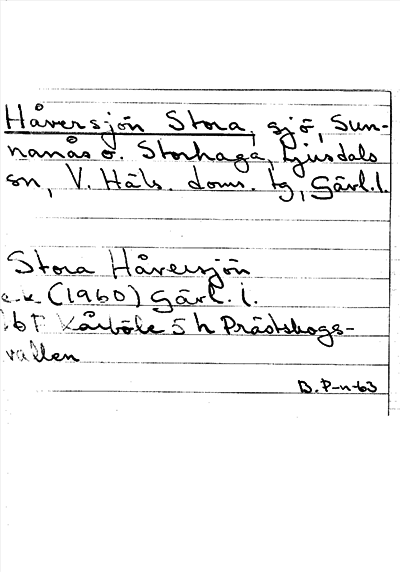 Håversjön Stora, sjö, Sun-
nanås o. Storhaga, Ljusdals
sn, V. Häls. doms. tg, Gävl.l.
Stora Håversjön
e.k. (1960) Gävl. l.
Kårböle 5 h Prästskogs-
vallen
B. P-n-63